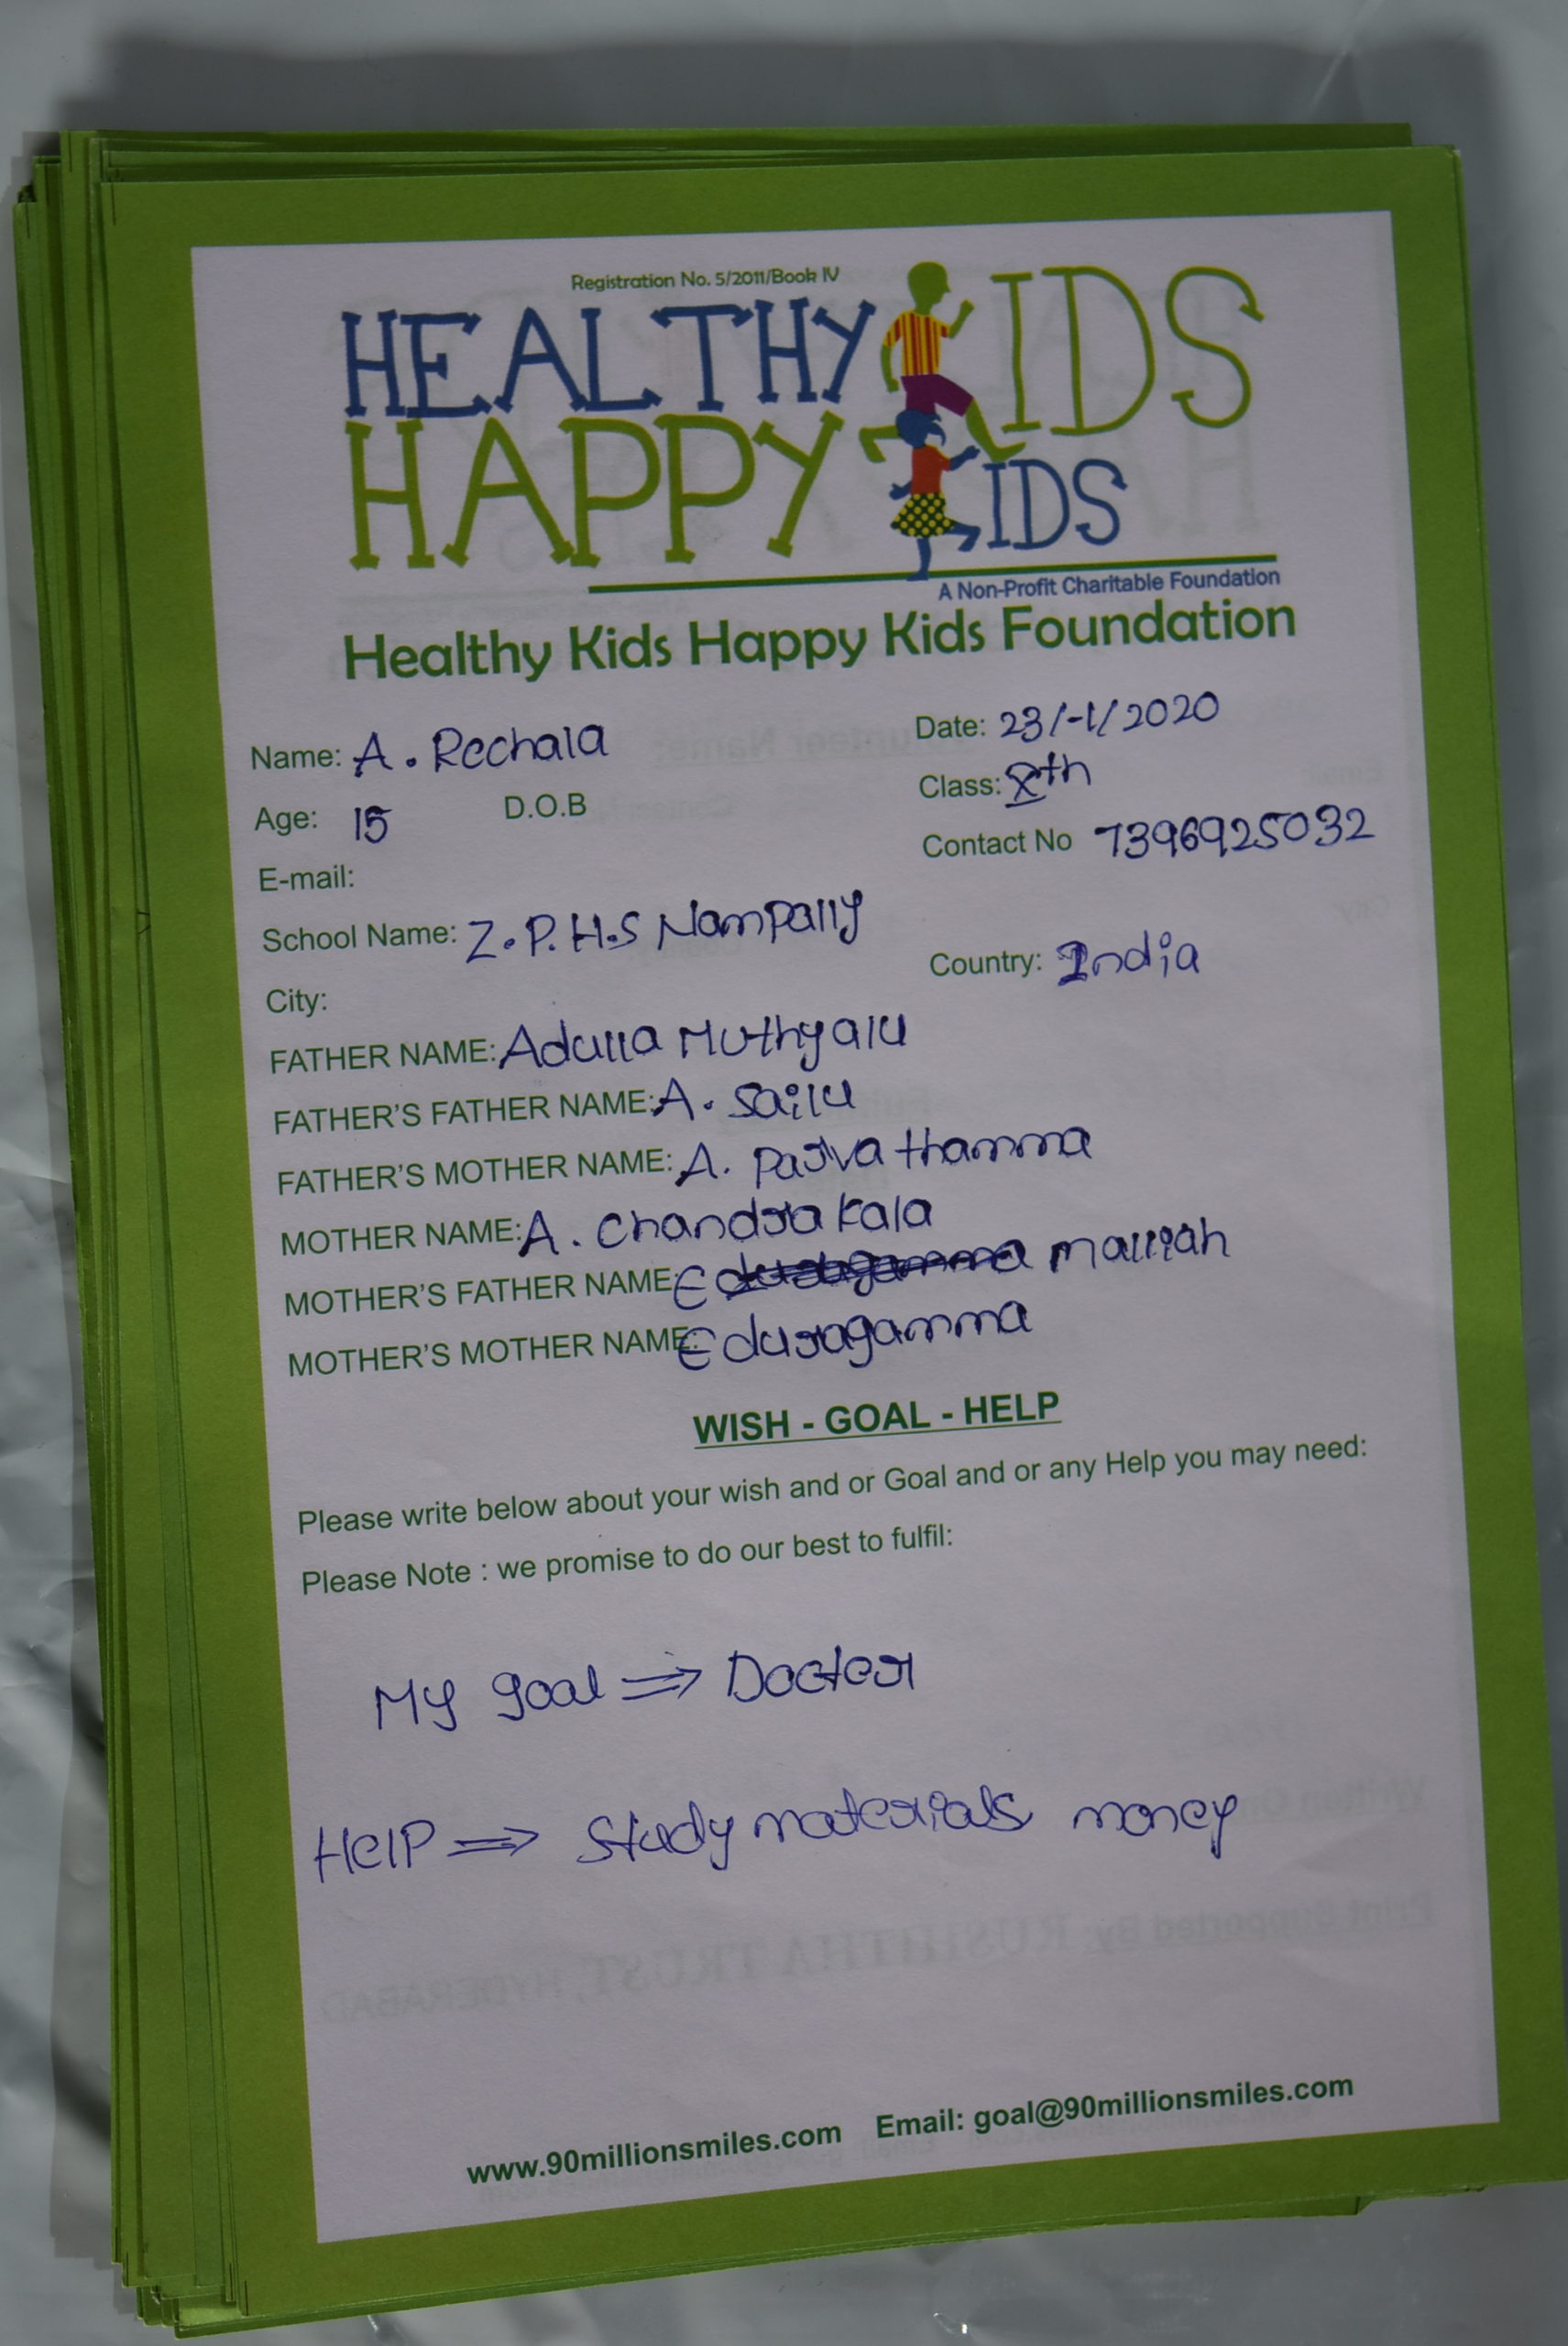 Registration No. 5/2011/Book IV
HEALTHY KIDS
HAPPY KIDS
A Non-Profit Charitable Foundation
Healthy Kids Happy Kids Foundation
Name: A. Rechala Date: 23/-1/2020
Age: 15 D.O.B Class: Xth
E-mail: Contact No 7396925032
School Name: Z.P.H.S Nampally
City: Country: India
FATHER NAME: Adulla Muthyalu
FATHER'S FATHER NAME: A. Sailu
FATHER'S MOTHER NAME: A. Parvathamma
MOTHER NAME: A. Chandrakala
MOTHER'S FATHER NAME: E malliah
MOTHER'S MOTHER NAME: E duragamma
WISH - GOAL - HELP
Please write below about your wish and or Goal and or any Help you may need:
Please Note : we promise to do our best to fulfil:
My goal ⇒ Docter
Help ⇒ Study materials money
www.90millionsmiles.com Email: goal@90millionsmiles.com